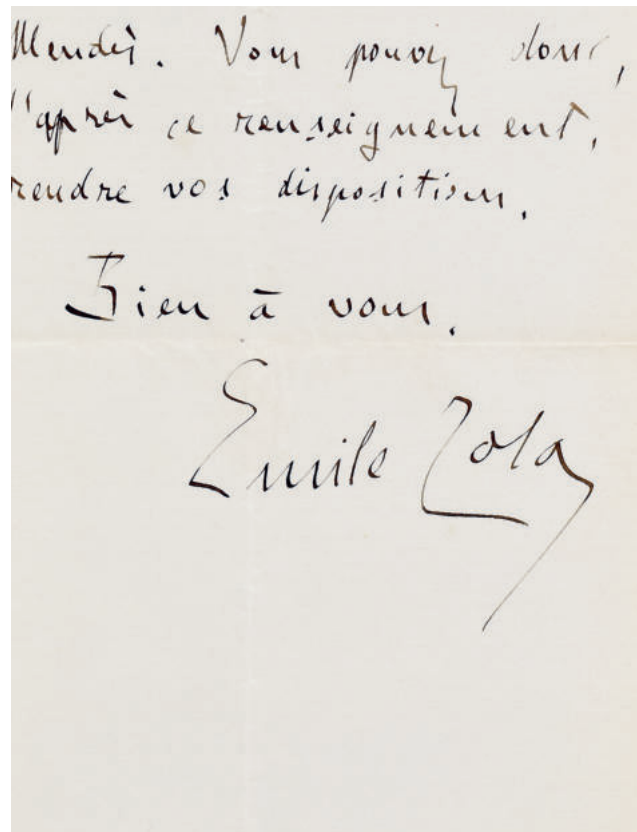 Mendès. Vous pouvez donc,
d'après ce renseignement,
rendre vos dispositions.
Bien à vous.
Emile Zola